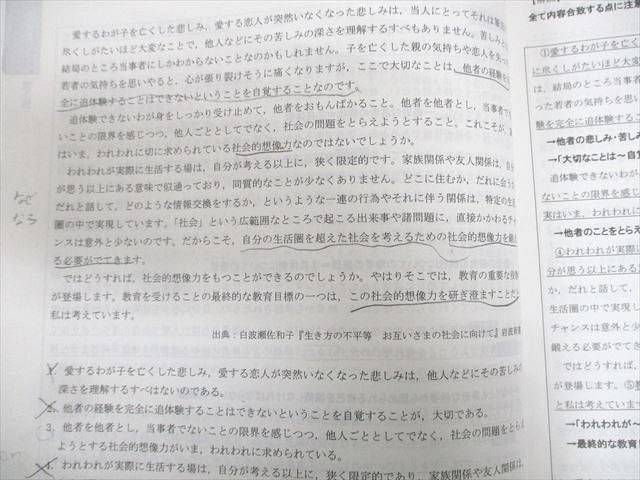 愛するわが子を亡くした悲しみ,愛する恋人が突然いなくなった悲しみは,当人にとってそれは筆舌
尽くしがたいほど大変なことで,他人などにその苦しみの深さを理解するすべもありません。苦しみ
結局のところ当事者にしかわからないことなのかもしれません。子を亡くした親の気持ちや恋人を失っ
若者の気持ちを思いやると,心が張り裂けそうに痛くなりますが,ここで大切なことは,他者の経験を
全に追体験することはできないということを自覚することなのです。
追体験できないわが身をしっかり受け止めて,他者をおもんぱかること。他者を他者とし,当事者で
いことの限界を感じつつ,他人ごととしてでなく,社会の問題をとらえようとすること。これこそが,
はいま,われわれに切に求められている社会的想像力なのではないでしょうか。
われわれが実際に生活する場は,自分が考える以上に,狭く限定的です。家族関係や友人関係は,自分
が思う以上にある意味で似通っており,同質的なことが少なくありません。どこに住むか,だれに会う
だれと話して,どのような情報交換をするか,というような一連の行為やそれに伴う関係は,特定の生活
圏の中で実現しています。「社会」という広範囲なところで起こる出来事や諸問題に,直接かかわるチャ
ンスは意外と少ないのです。だからこそ,自分の生活圏を超えた社会を考えるための社会的想像力を鍛え
る必要がでてきます。
ではどうすれば,社会的想像力をもつことができるのでしょうか。やはりそこでは,教育の重要な役割
が登場します。教育を受けることの最終的な教育目標の一つは,この社会的想像力を研ぎ澄ますことだと
私は考えています。
出典:白波瀬佐和子『生き方の不平等 お互いさまの社会に向けて』岩波新書
1. 愛するわが子を亡くした悲しみ,愛する恋人が突然いなくなった悲しみは,他人などにその苦しみの
深さを理解するすべはないのである。
2. 他者の経験を完全に追体験することはできないということを自覚することが,大切である。
3. 他者を他者とし,当事者でないことの限界を感じつつ,他人ごととしてでなく,社会の問題をとらえ
ようとする社会的想像力がいま,われわれに求められている。
4. われわれが実際に生活する場は,自分が考える以上に,狭く限定的であり,家族関係や友人関係は,
なぜ
なら
全て内容合致する点に注意
①愛するわが子を亡
に尽くしがたいほど
は,結局のところ当
った若者の気持ちを
験を完全に追体験す
→他者の悲しみ・苦し
→「大切なことは~自覚
追体験できないわが
ないことの限界を感じ
実はいま,われわれに
→他者のことをとらえ
④われわれが実際に
分が思う以上にある意
か,だれと話して,
生活圏の中で実現
チャンスは意外と少
鍛える必要がでて
ではどうすれば,
が登場します。⑤教
と私は考えています
→「われわれが~
→最終的な教育目